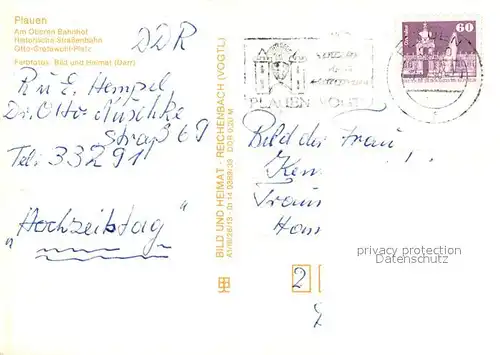 Plauen
Am Oberen Bahnhof
Historische Straßenbahn
Otto-Grotewohl-Platz
Farbfotos: Bild und Heimat (Darr)
DDR
R. u. E. Hempel
Dr. Otto Nuschke
Straße 69
Tel: 33291
"Hochzeitstag"
BILD UND HEIMAT · REICHENBACH (VOGTL)
PLAUEN VOGTL
60
Bild der Frau
privacy protection
Datenschutz
2